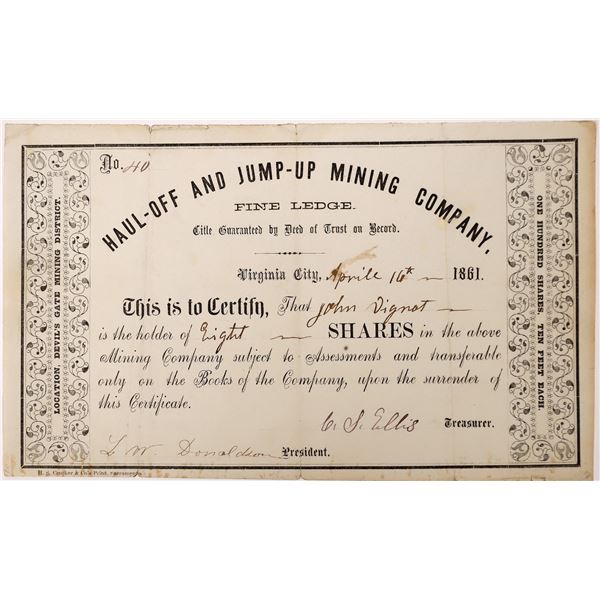 No. 40
HAUL-OFF AND JUMP-UP MINING COMPANY,
FINE LEDGE.
Title Guaranteed by Deed of Trust on Record.
Virginia City, Aprile 16th 1861.
This is to Certify, That John Vignot
is the holder of Eight SHARES in the above
Mining Company subject to Assessments and transferable
only on the Books of the Company, upon the surrender of
this Certificate.
C. J. Ellis Treasurer.
L W. Donaldson President.
LOCATION, DEVIL'S GATE MINING DISTRICT.
ONE HUNDRED SHARES, TEN FEET EACH.
H. S. Crocker & Co's Print, Sacramento